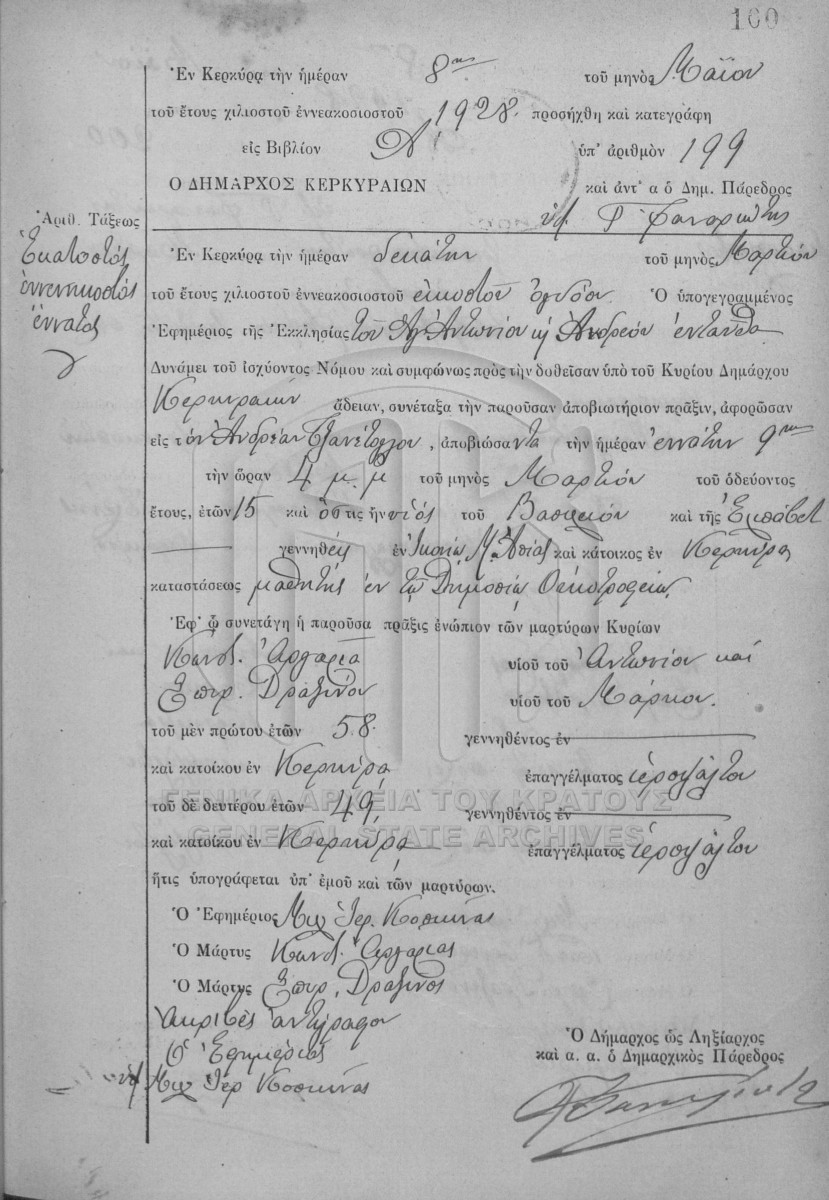 100
Ἐν Κερκύρᾳ τὴν ἡμέραν 8ην τοῦ μηνὸς Μαΐου
τοῦ ἔτους χιλιοστοῦ ἐννεακοσιοστοῦ 1928 προσήχθη καὶ κατεγράφη
εἰς Βιβλίον Α' ὑπ' ἀριθμὸν 199
Ο ΔΗΜΑΡΧΟΣ ΚΕΡΚΥΡΑΙΩΝ καὶ ἀντ' α ὁ Δημ. Πάρεδρος
Ἀριθ. Τάξεως
Ἑκατοστὸς
ἐννενηκοστὸς
ἔννατος
Ἐν Κερκύρᾳ τὴν ἡμέραν δεκάτην τοῦ μηνὸς Μαρτίου
τοῦ ἔτους χιλιοστοῦ ἐννεακοσιοστοῦ εἰκοστοῦ ὀγδόου Ὁ ὑπογεγραμμένος
Ἐφημέριος τῆς Ἐκκλησίας τοῦ Ἁγ Ἀντωνίου κ Ἀνδρέου ἐνταῦθα
Δυνάμει τοῦ ἰσχύοντος Νόμου καὶ συμφώνως πρὸς τὴν δοθεῖσαν ὑπὸ τοῦ Κυρίου Δημάρχου
Κερκυραίων ἄδειαν, συνέταξα τὴν παροῦσαν ἀποβιωτήριον πρᾶξιν, ἀφορῶσαν
εἰς τὸν Ἀνδρέαν, ἀποβιώσαντα τὴν ἡμέραν ἐννάτην 9ην
τὴν ὥραν 4 μ.μ τοῦ μηνὸς Μαρτίου τοῦ ὁδεύοντος
ἔτους, ἐτῶν 15 καὶ ὅστις ἦν υἱὸς τοῦ Βασιλείου καὶ τῆς Ἐλισάβετ
γεννηθεὶς ἐν Ἰκονίῳ Μ. Ἀσίας καὶ κάτοικος ἐν Κερκύρᾳ
καταστάσεως μαθητὴς ἐν τῷ Δημοσίῳ Οἰκοτροφείῳ
Ἐφ' ᾧ συνετάγη ἡ παροῦσα πρᾶξις ἐνώπιον τῶν μαρτύρων Κυρίων
Κωνσ. υἱοῦ τοῦ Ἀντωνίου καὶ
Σπυρ. Δραζίνου υἱοῦ τοῦ Μάρκου.
τοῦ μὲν πρώτου ἐτῶν 58. γεννηθέντος ἐν
καὶ κατοίκου ἐν Κερκύρᾳ ἐπαγγέλματος ἱεροψάλτου
τοῦ δὲ δευτέρου ἐτῶν 49, γεννηθέντος ἐν
καὶ κατοίκου ἐν Κερκύρᾳ ἐπαγγέλματος ἱεροψάλτου
ΓΕΝΙΚΑ ΑΡΧΕΙΑ ΤΟΥ ΚΡΑΤΟΥΣ
GENERAL STATE ARCHIVES
ἥτις ὑπογράφεται ὑπ' ἐμοῦ καὶ τῶν μαρτύρων.
Ὁ Ἐφημέριος Μιχ Ἱερ. Κοσκινᾶς
Ὁ Μάρτυς Κωνσ.
Ὁ Μάρτυς Σπυρ. Δραζῖνος
Ἀκριβὲς ἀντίγραφον
Ὁ Ἐφημέριος
Μιχ Ἱερ Κοσκινᾶς
Ὁ Δήμαρχος ὡς Ληξίαρχος
καὶ α. α. ὁ Δημαρχικὸς Πάρεδρος